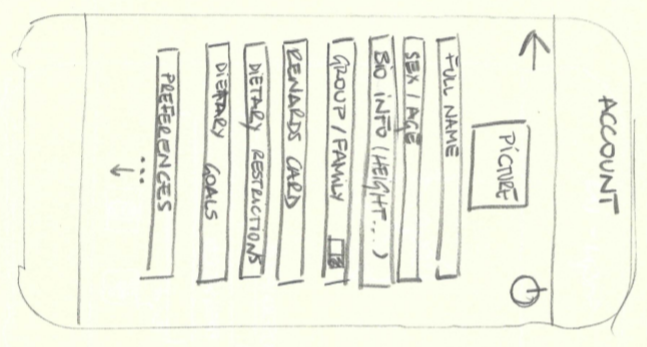 ACCOUNT
PICTURE
FULL NAME
SEX / AGE
BIO INFO (HEIGHT....)
GROUP / FAMILY
REWARDS CARD
DIETARY RESTRICTIONS
DIETARY GOALS
PREFERENCES
...